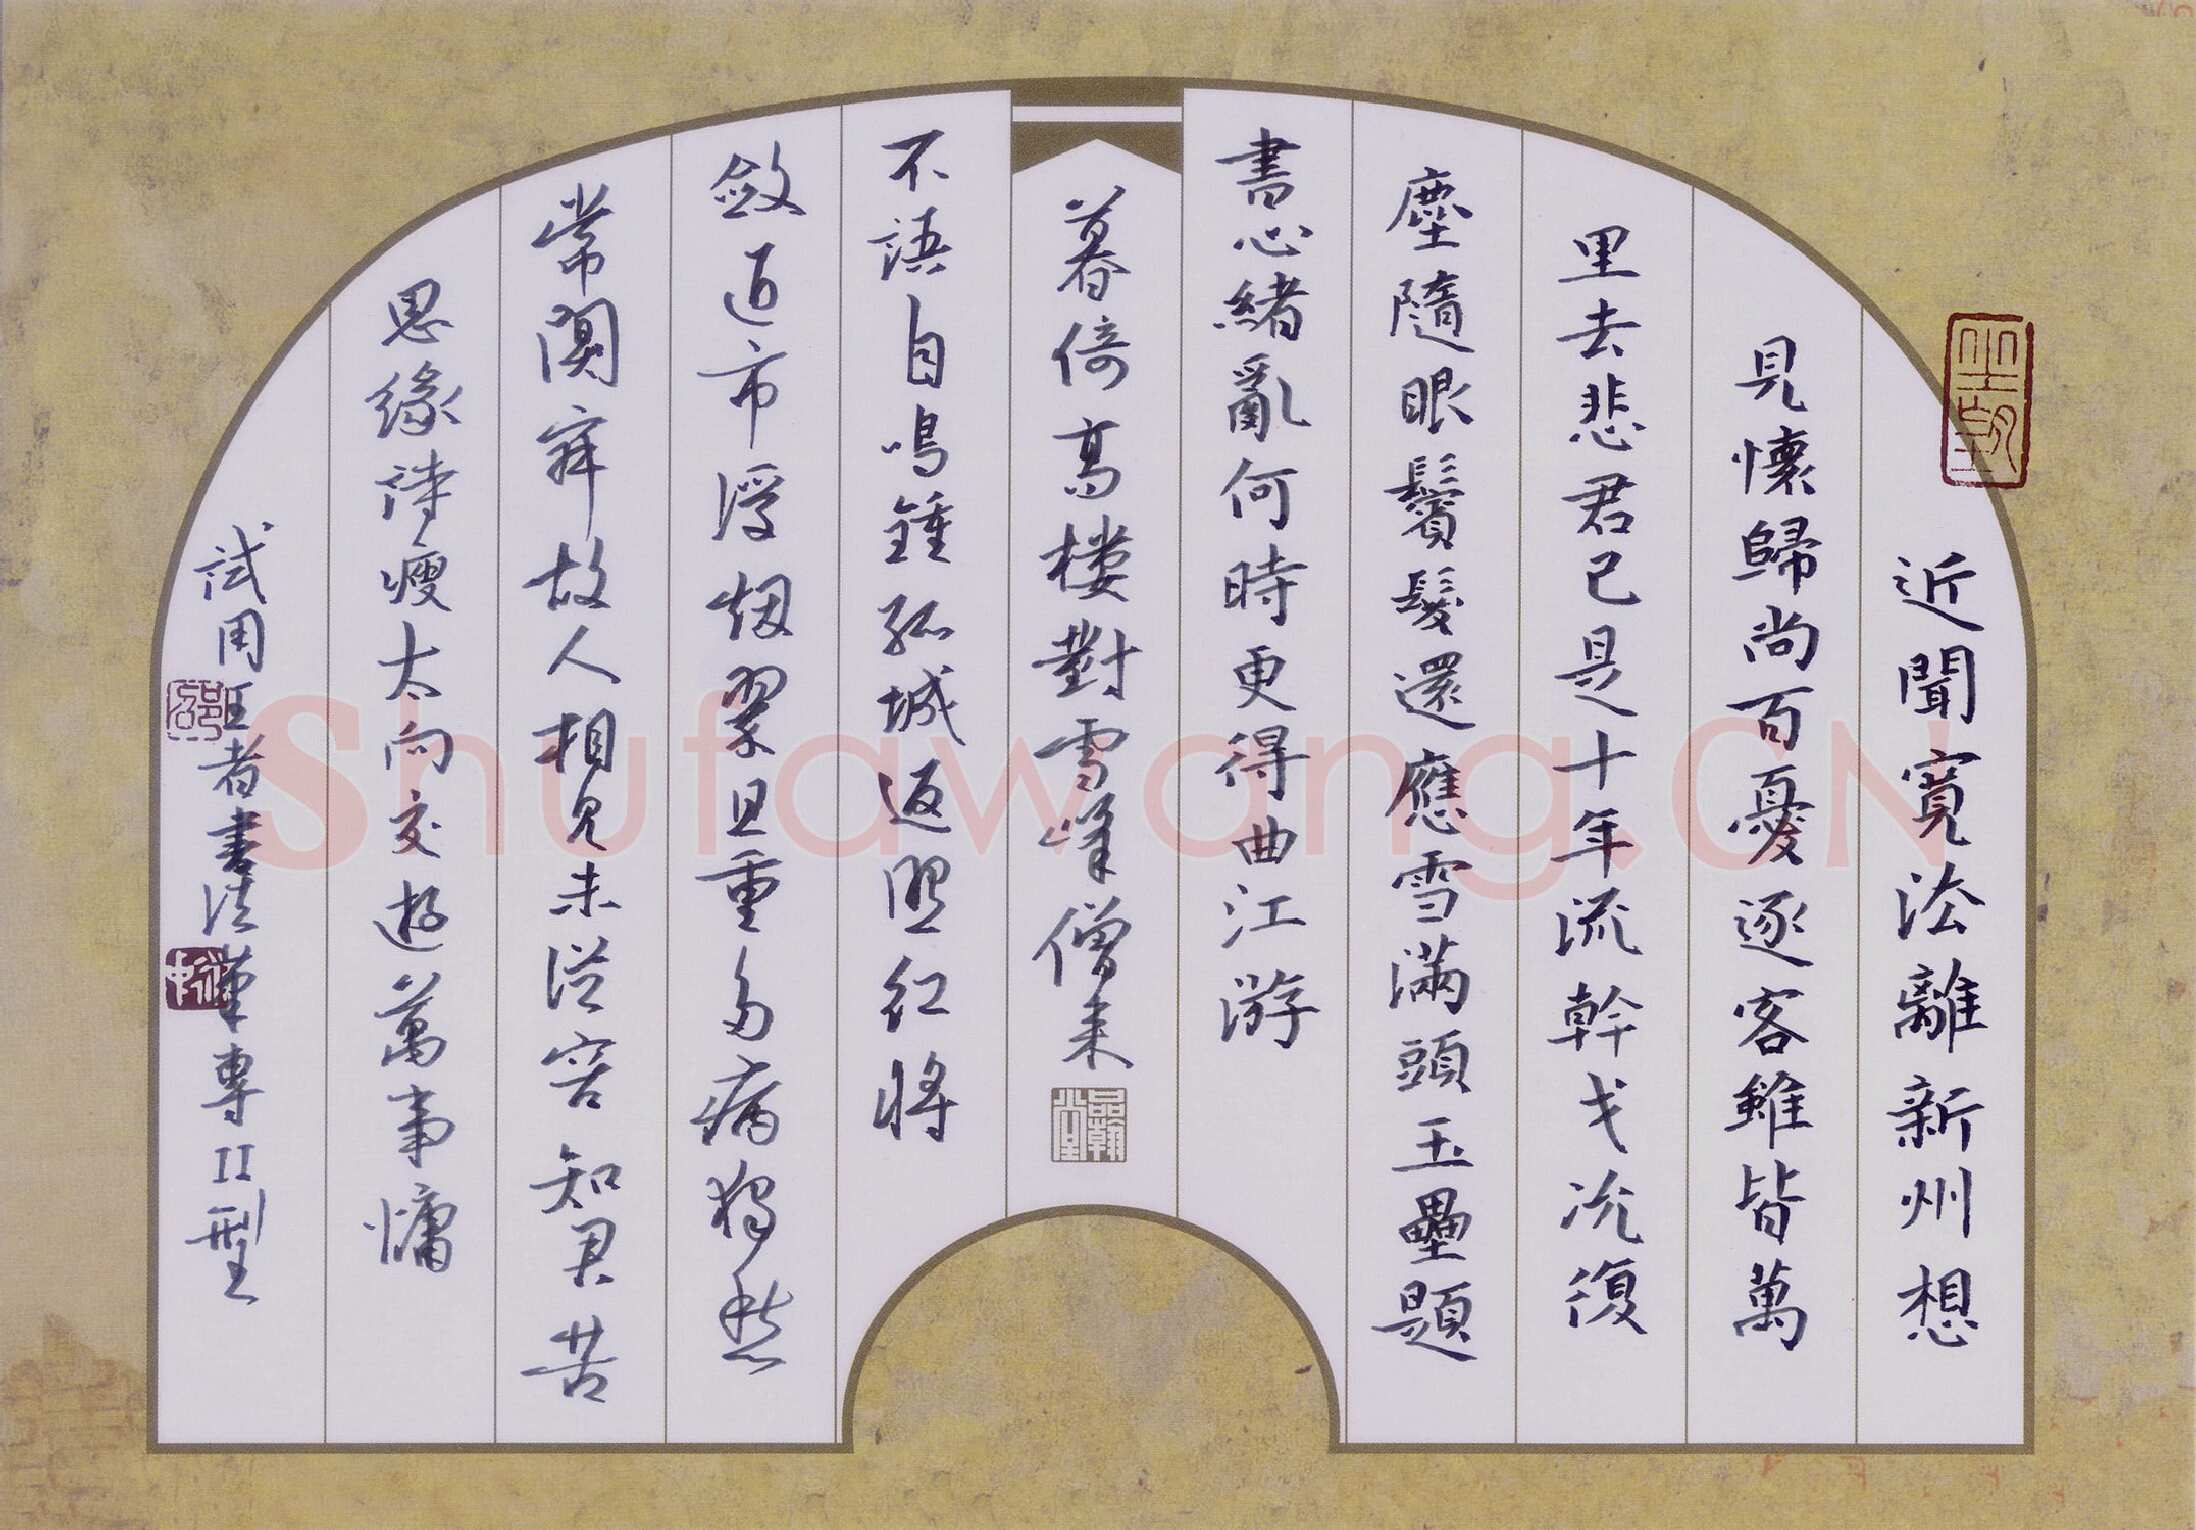 近聞寬法離新州想
見懷歸尚百憂逐客雖皆萬
里去悲君已是十年流幹戈況復
塵隨眼鬢髮還應雪滿頭玉壘題
書心緒亂何時更得曲江游
暮倚高楼對雪峰僧来
品翰堂
不語自鳴鍾孤城返照紅將
斂近市浮烟翠且重多病獨愁
常闃寂故人相見未從容知君苦
思緣詩瘦太向交遊萬事慵
試用王者書法筆專II型
邵
Shufawang.CN